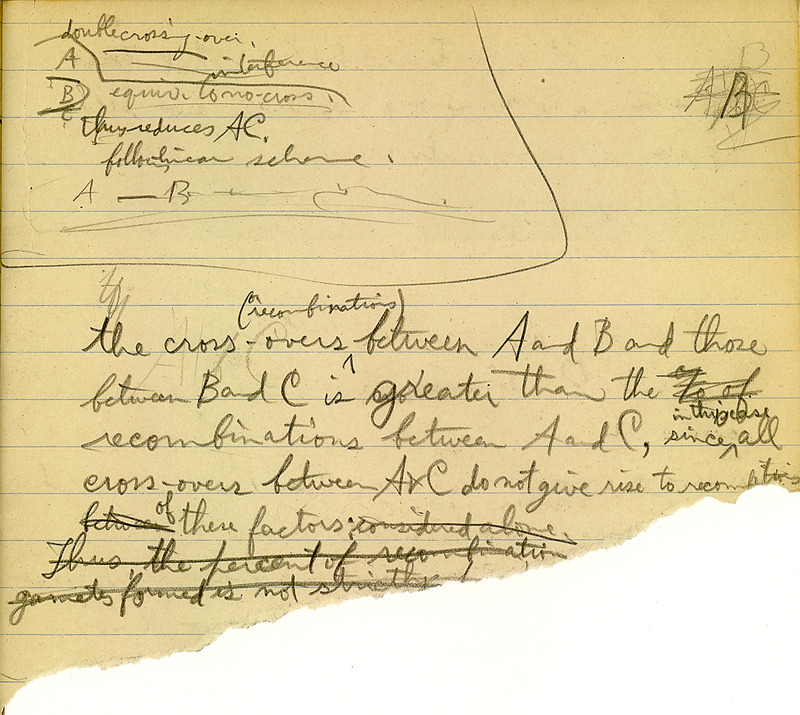 double crossing-over.
A
interference
B equiv. to no-cross.
C
thus reduces AC.
follow linear scheme.
A — B
B
A B
(recombinations)
the cross-overs between A and B and those
between B and C is greater than the % of
in this case
recombinations between A and C, since all
cross-overs between A & C do not give rise to recombinations
between of these factors, considered alone.
Thus, the percent of recombination
gametes formed is not strictly